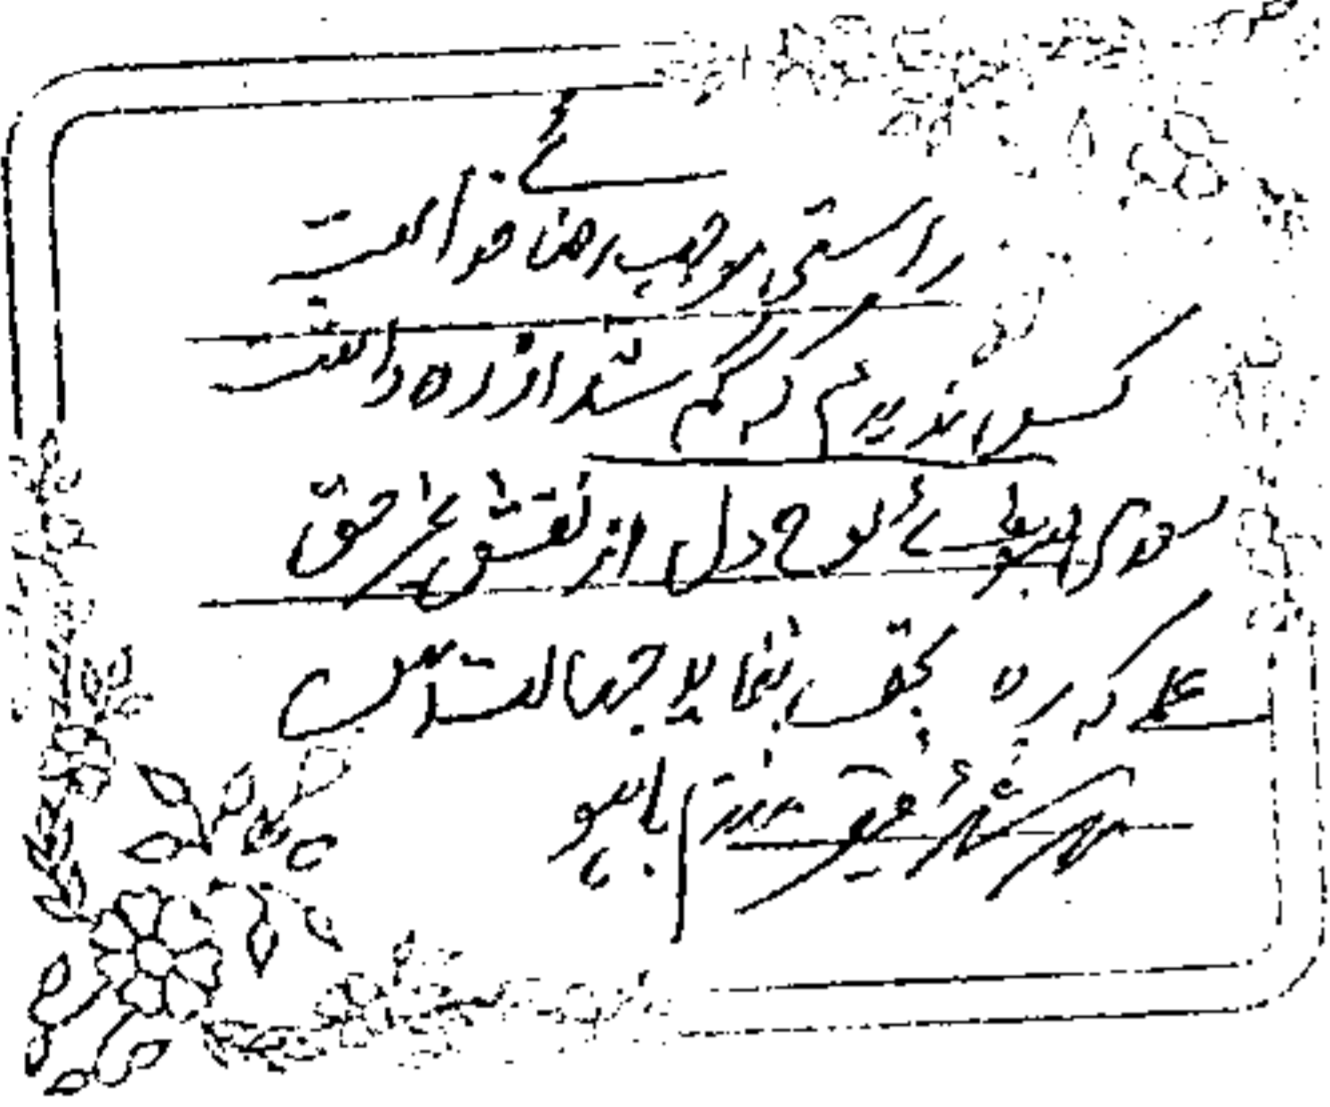 راستی موجب رضا خدا است
کس ندیدم که گم شد از ره راست
سعدی بشوئے لوح دل از نقش غیر حق
علمے کہ رہ بحق ننماید جہالت است